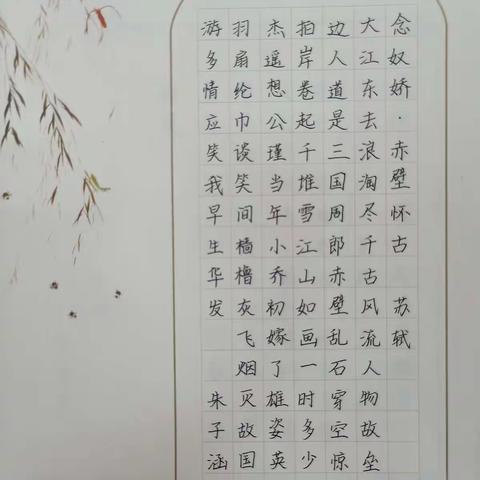 念奴娇·赤壁怀古 苏轼
大江东去浪淘尽千古风流人物故垒
边人道是三国周郎赤壁乱石穿空惊
拍岸卷起千堆雪江山如画一时多少
杰遥想公瑾当年小乔初嫁了雄姿英
羽扇纶巾谈笑间樯橹灰飞烟灭故国
游多情应笑我早生华发 朱子涵